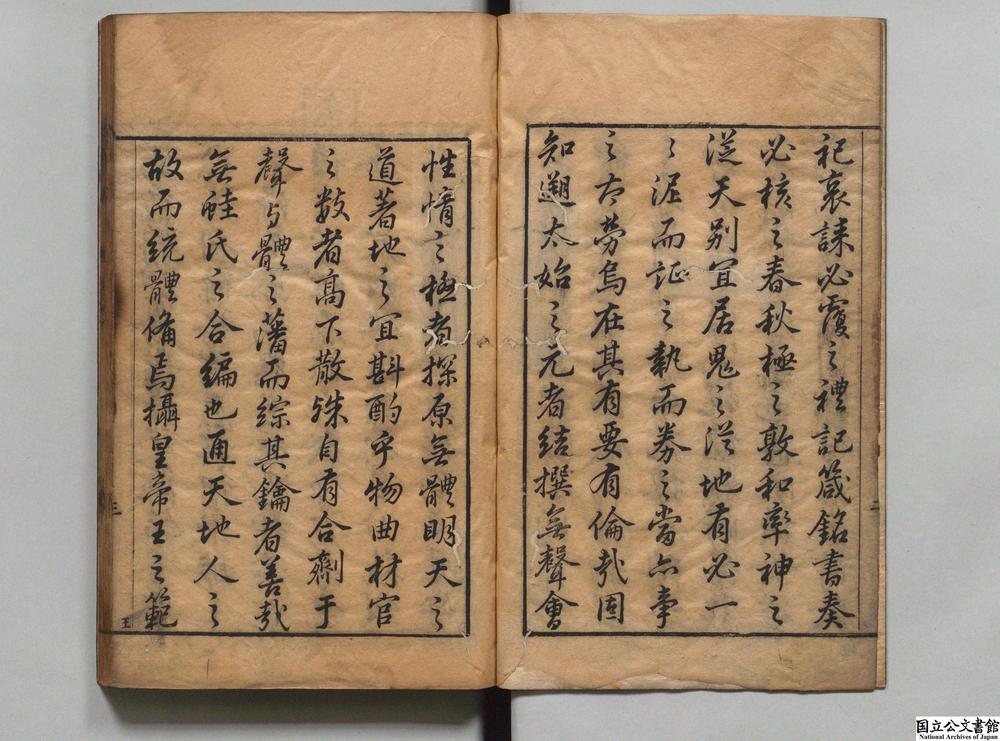 祀哀誄必覆之禮記箴銘書奏
必核之春秋極之敦和率神之
從天别宜居鬼之從地有必一
之泥而証之執而券之當亦事
之太勞烏在其有要有倫哉固
知遡太始之元者結撰無聲會
性情之極者探原無體明天之
道著地之宜斟酌乎物曲材官
之数者高下散殊自有合劑于
聲与體之藩而綜其鑰者善哉
無
氏之合編也通天地人之
故而統體備焉攝皇帝王之範
二
三
王
国立公文書館
National Archives of Japan